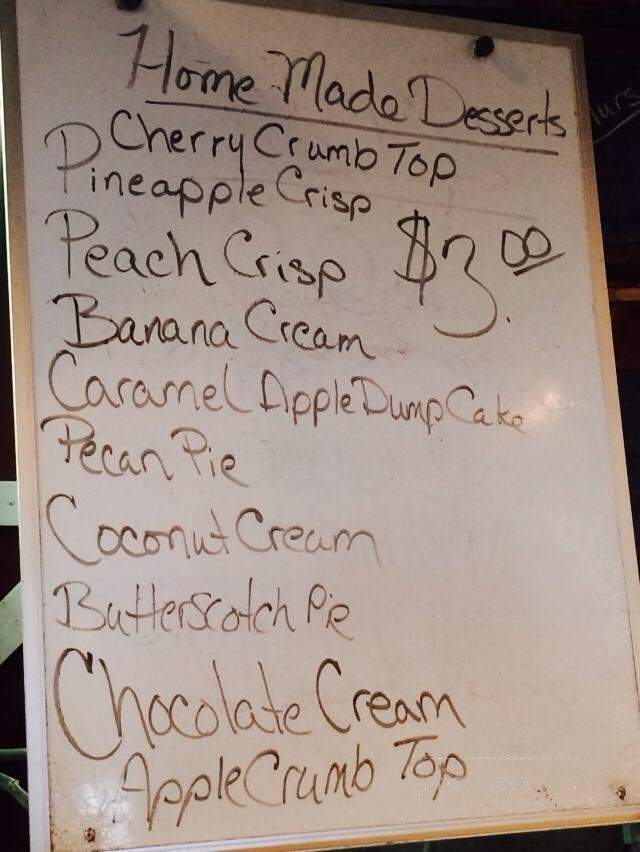 Home Made Desserts
Cherry Crumb Top
Pineapple Crisp
Peach Crisp $3.00
Banana Cream
Caramel Apple Dump Cake
Pecan Pie
Coconut Cream
Butterscotch Pie
Chocolate Cream
Apple Crumb Top